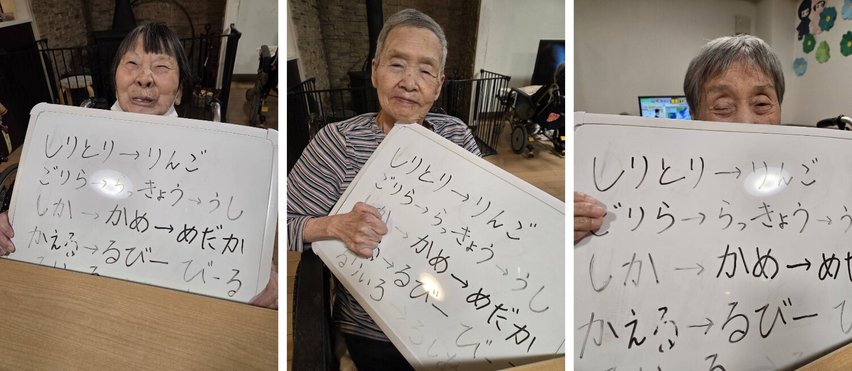 しりとり→りんご
ごりら→らっきょう→うし
しか→かめ→めだか
かえる→るびー びーる
しりとり→りんご
ごりら→らっきょう→うし
しか→かめ→めだか
るびー
いろ
しりとり→りんご
ごりら→らっきょう→う
しか→かめ→めだ
かえる→るびー び